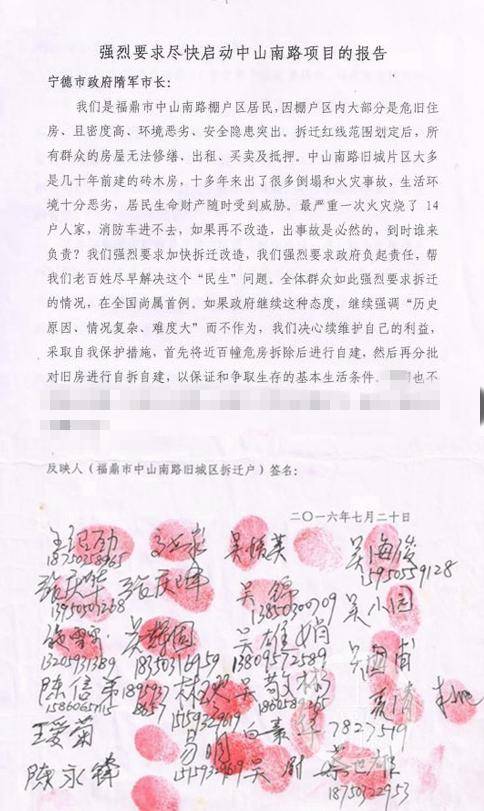 强烈要求尽快启动中山南路项目的报告
宁德市政府隋军市长：
我们是福鼎市中山南路棚户区居民，因棚户区内大部分是危旧住
房、且密度高、环境恶劣、安全隐患突出。拆迁红线范围划定后，所
有群众的房屋无法修缮、出租、买卖及抵押。中山南路旧城片区大多
是几十年前建的砖木房，十多年来出了很多倒塌和火灾事故，生活环
境十分恶劣，居民生命财产随时受到威胁。最严重一次火灾烧了 14
户人家，消防车进不去，如果再不改造，出事故是必然的，到时谁来
负责？我们强烈要求加快拆迁改造，我们强烈要求政府负起责任，帮
我们老百姓尽早解决这个“民生”问题。全体群众如此强烈要求拆迁
的情况，在全国尚属首例。如果政府继续这种态度，继续强调“历史
原因、情况复杂、难度大”而不作为，我们决心续维护自己的利益，
采取自我保护措施，首先将近百幢危房拆除后进行自建，然后再分批
对旧房进行自拆自建，以保证和争取生存的基本生活条件。 也不
反映人（福鼎市中山南路旧城区拆迁户）签名：
二〇一六年七月二十日
吴海俊
18750258965 15950559128
张庆华 张庆 吴锦 吴小园
13950501268 13850300709
吴雄娟
13205931389 18350316959 13809572589
陈信弟 吴敬彬
15860657115
王爱菊 7827519
陈永锋 易明 吴
18750322953